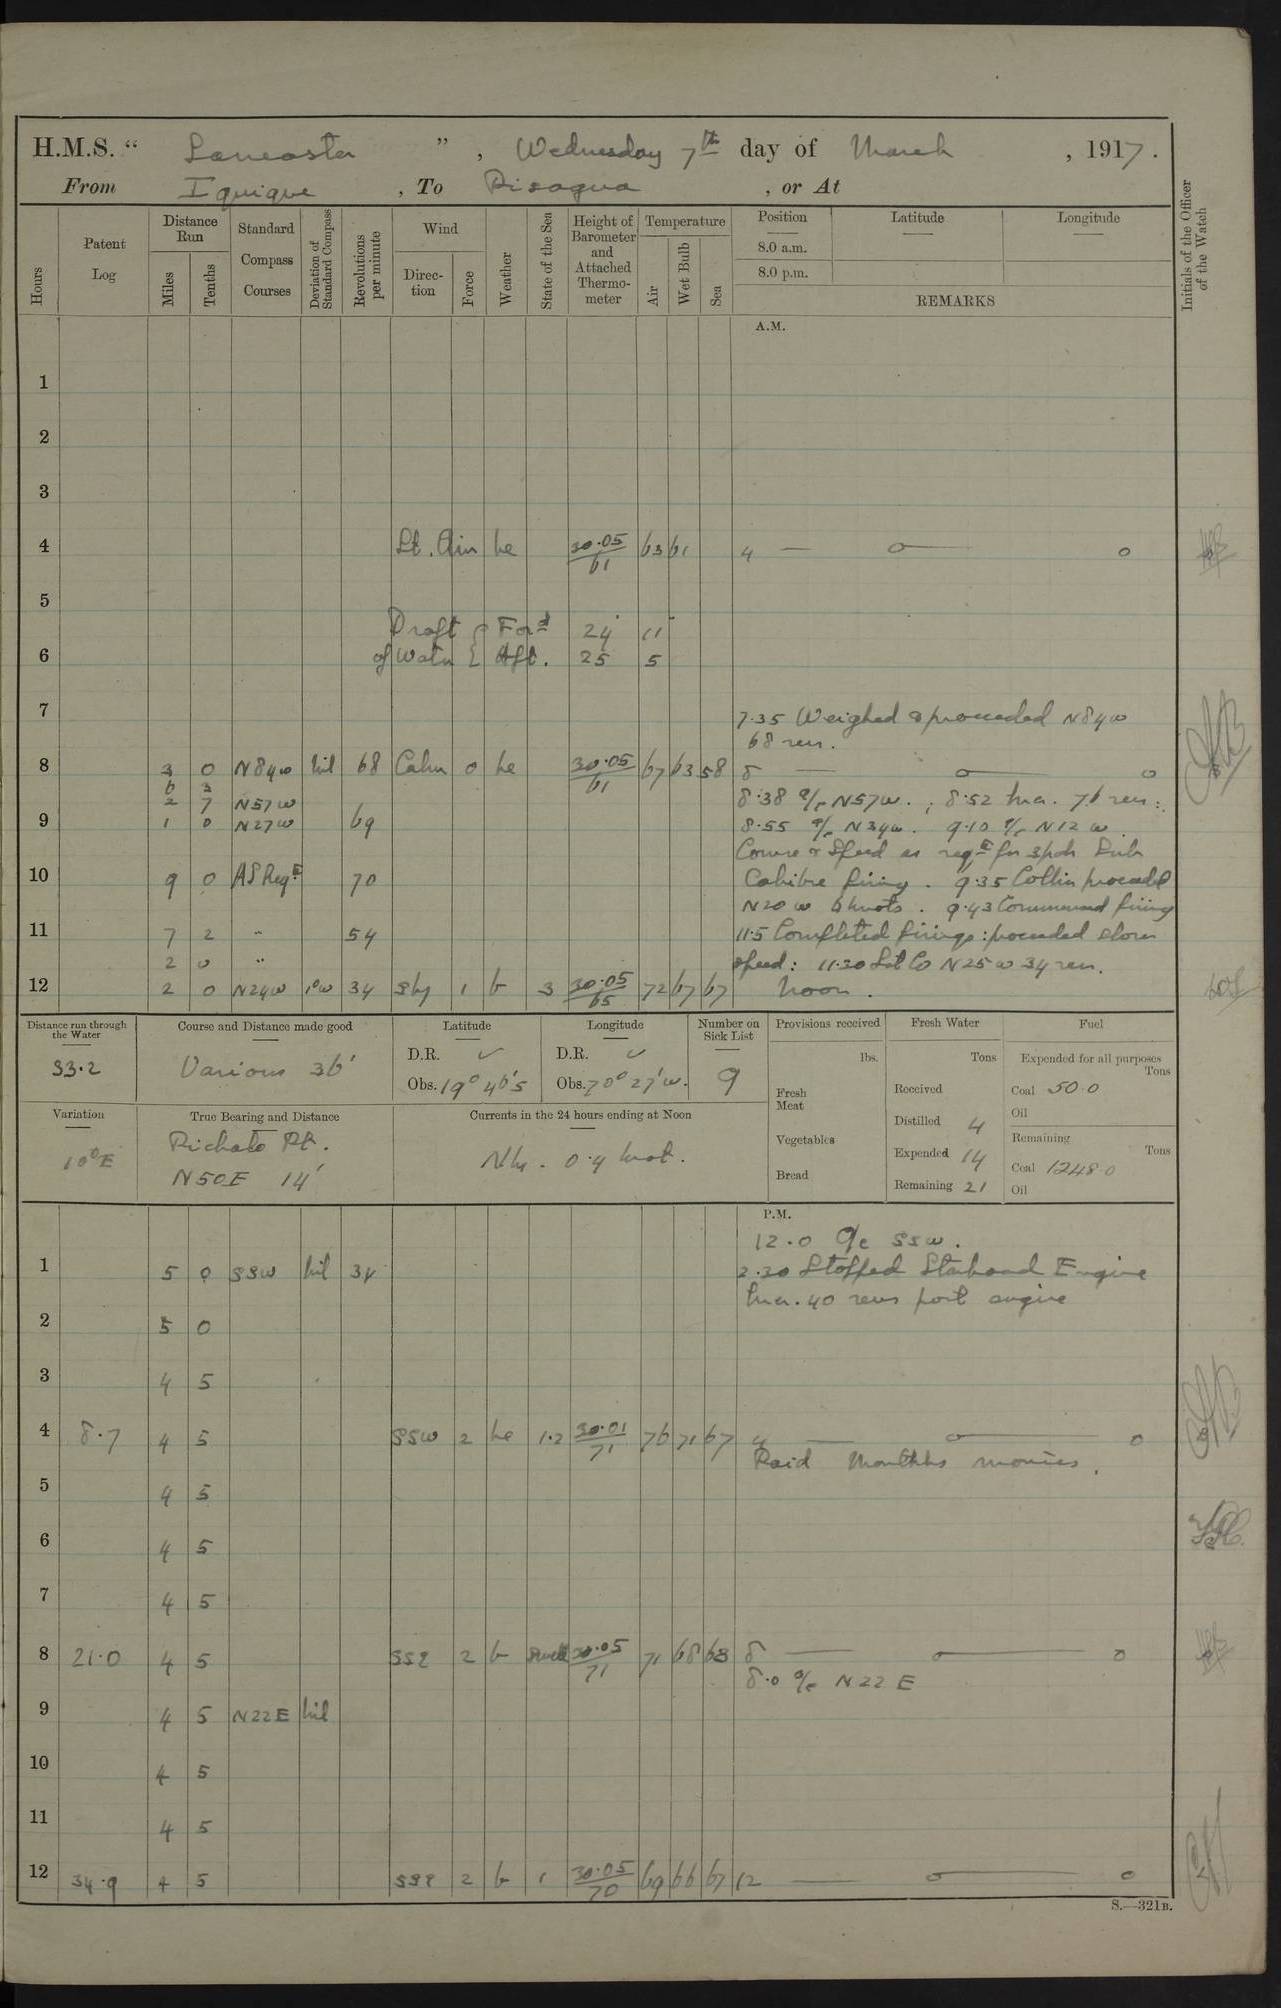 H.M.S. “ Lancaster ” , Wednesday 7th day of March , 1917.
From Iquique , To Pisagua , or At
Hours
Patent Log
Distance Run
Miles
Tenths
Standard Compass Courses
Deviation of Standard Compass
Revolutions per minute
Wind
Direc-tion
Force
Weather
State of the Sea
Height of Barometer and Attached Thermo-meter
Temperature
Air
Wet Bulb
Sea
Position Latitude Longitude
8.0 a.m.
8.0 p.m.
REMARKS
Initials of the Officer of the Watch
A.M.
1
2
3
4 Lt. Airs bc 30.05/61 63 61 4 — o — o
5
Draft { Ford 24' 11"
6 of Water { Aft. 25 5
7 7.35 Weighed & proceeded N84W
68 revs.
8 3 0 N84W nil 68 Calm 0 bc 30.05/61 67 63 58 8 — o — o
6 3
2 7 N57W 8.38 a/c N57W. ; 8.52 Inc. 76 revs:
9 1 0 N27W 69 8.55 a/c N34W. 9.10 a/c N12W.
Course & Speed as reqd for 3pdr Sub
10 9 0 As Reqd 70 Calibre firing. 9.35 Collin proceeded
N20W 6 knots. 9.43 Commenced firing
11 7 2 " 54 11.5 Completed firings: proceeded slow
2 0 " speed: 11.30 Set Co N25W 34 revs.
12 2 0 N24W 1°W 34 Sly 1 b 3 30.05/65 72 67 67 Noon.
Distance run through the Water
33.2
Course and Distance made good
Various 36'
Latitude
D.R. ✓
Obs. 19° 46'5
Longitude
D.R. ✓
Obs. 70° 27'W.
Number on Sick List
9
Provisions received
lbs.
Fresh Meat
Vegetables
Bread
Fresh Water
Tons
Received
Distilled 4
Expended 14
Remaining 21
Fuel
Expended for all purposes
Tons
Coal 50.0
Oil
Remaining
Tons
Coal 1248.0
Oil
Variation
10°E
True Bearing and Distance
Pichalo Pt.
N50E 14'
Currents in the 24 hours ending at Noon
Nly. 0.4 knot.
P.M.
12.0 a/c SSW.
1 5 0 SSW nil 34 2.30 Stopped Starboard Engine
Inc. 40 revs port engine
2 5 0
3 4 5
4 8.7 4 5 SSW 2 bc 1.2 30.01/71 76 71 67 4 — o — o
Paid Monthly monies.
5 4 5
6 4 5
7 4 5
8 21.0 4 5 SSE 2 b Swell 30.05/71 71 68 63 8 — o — o
8.0 a/c N22E
9 4 5 N22E nil
10 4 5
11 4 5
12 34.9 4 5 SSE 2 b 1 30.05/70 69 66 67 12 — o — o
S.—321B.